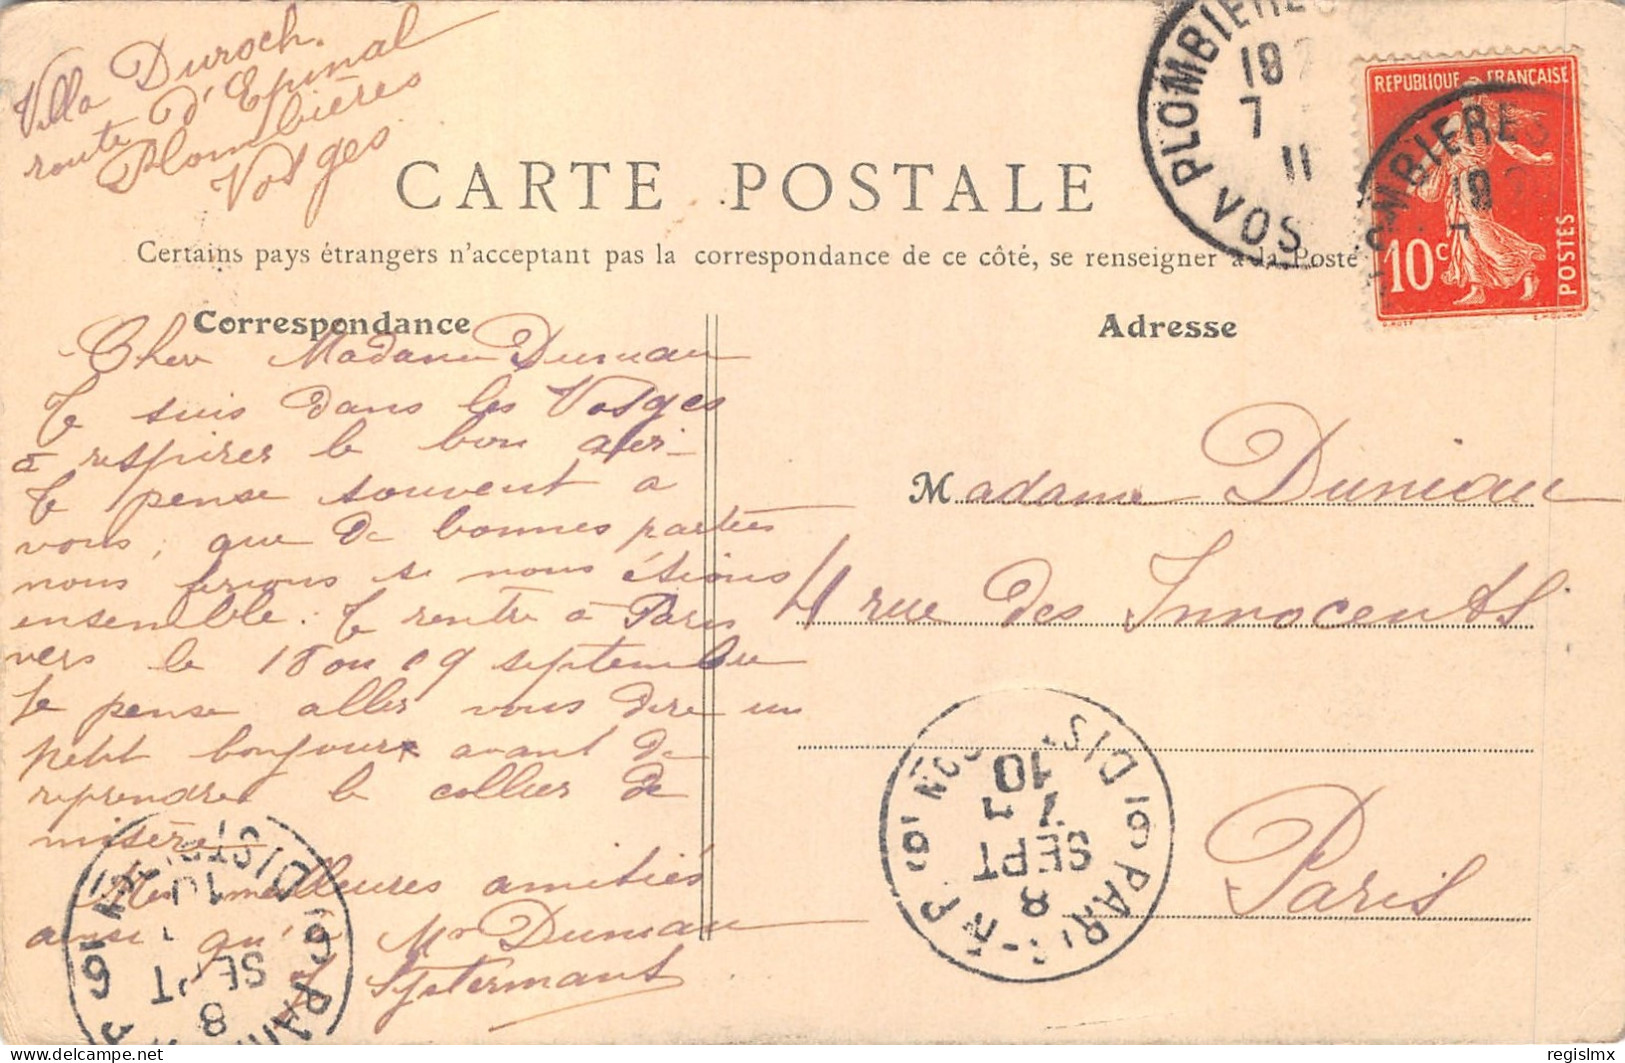 Villa Duroch.
route d'Epinal
Plombières
Vosges
CARTE POSTALE
Certains pays étrangers n'acceptant pas la correspondance de ce côté, se renseigner à la Poste
Correspondance
Adresse
Cher Madame Duniau
Je suis dans les Vosges
à respirer le bon air
Je pense souvent a
vous, que de bonnes parties
nous ferions si nous étions
ensemble. Je rentre à Paris
vers le 18 ou 19 septembre
Je pense aller vous dire un
petit bonjour avant de
reprendre le collier de
misère
Mes meilleures amitiés
ainsi qu'à Mr Duniau
Madame Duniau
4 rue des Innocents
Paris
PLOMBIERES
18
7
11
VOS
REPUBLIQUE FRANÇAISE
10c
POSTES
MBIERES
18
7
DIS
10
7 1
SEPT
8
PARIS
DIST
10
SEPT
8
PARI
delcampe.net
regislmx